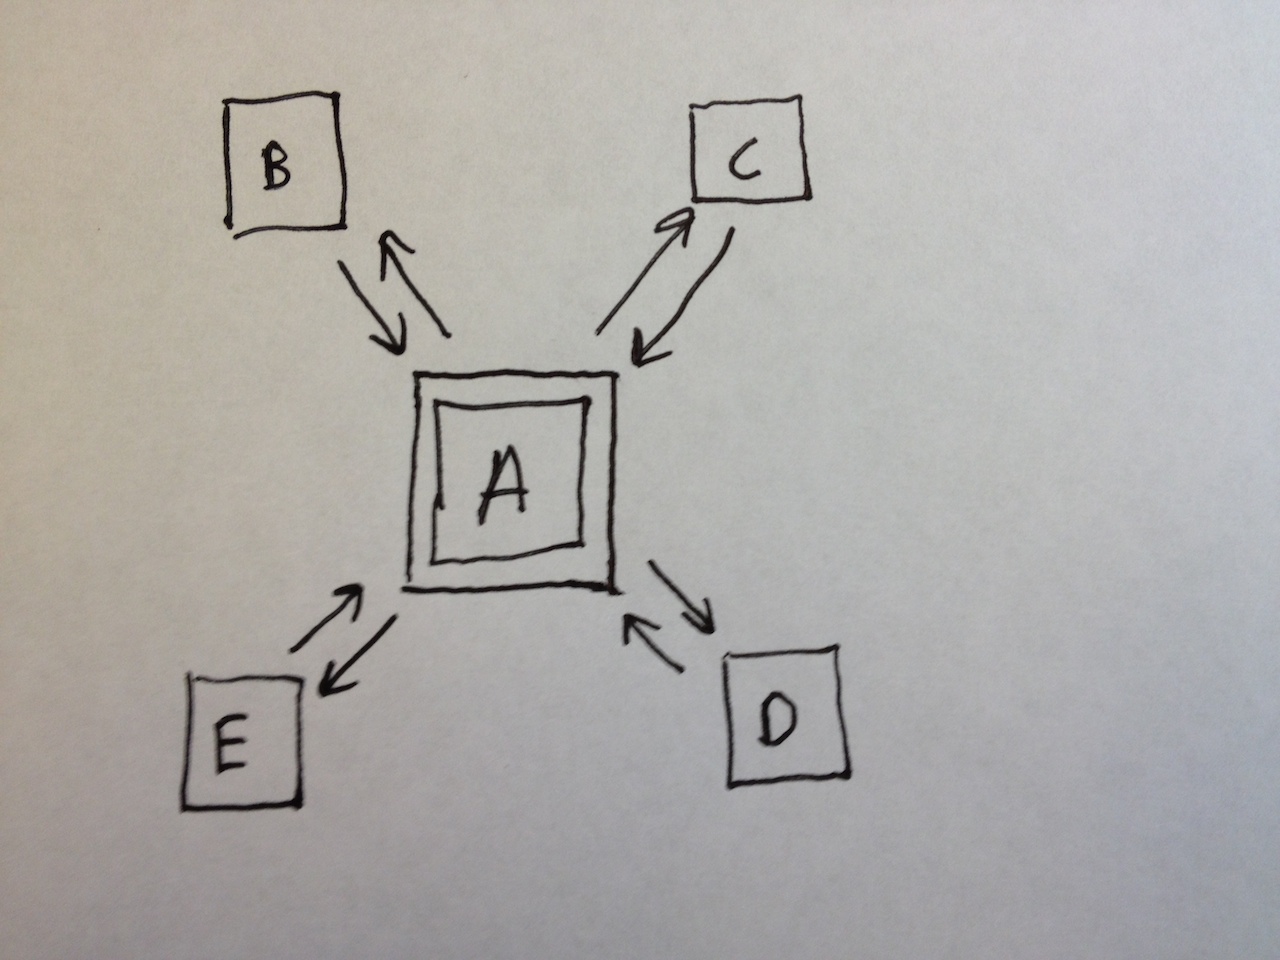 B
C
A
E
D